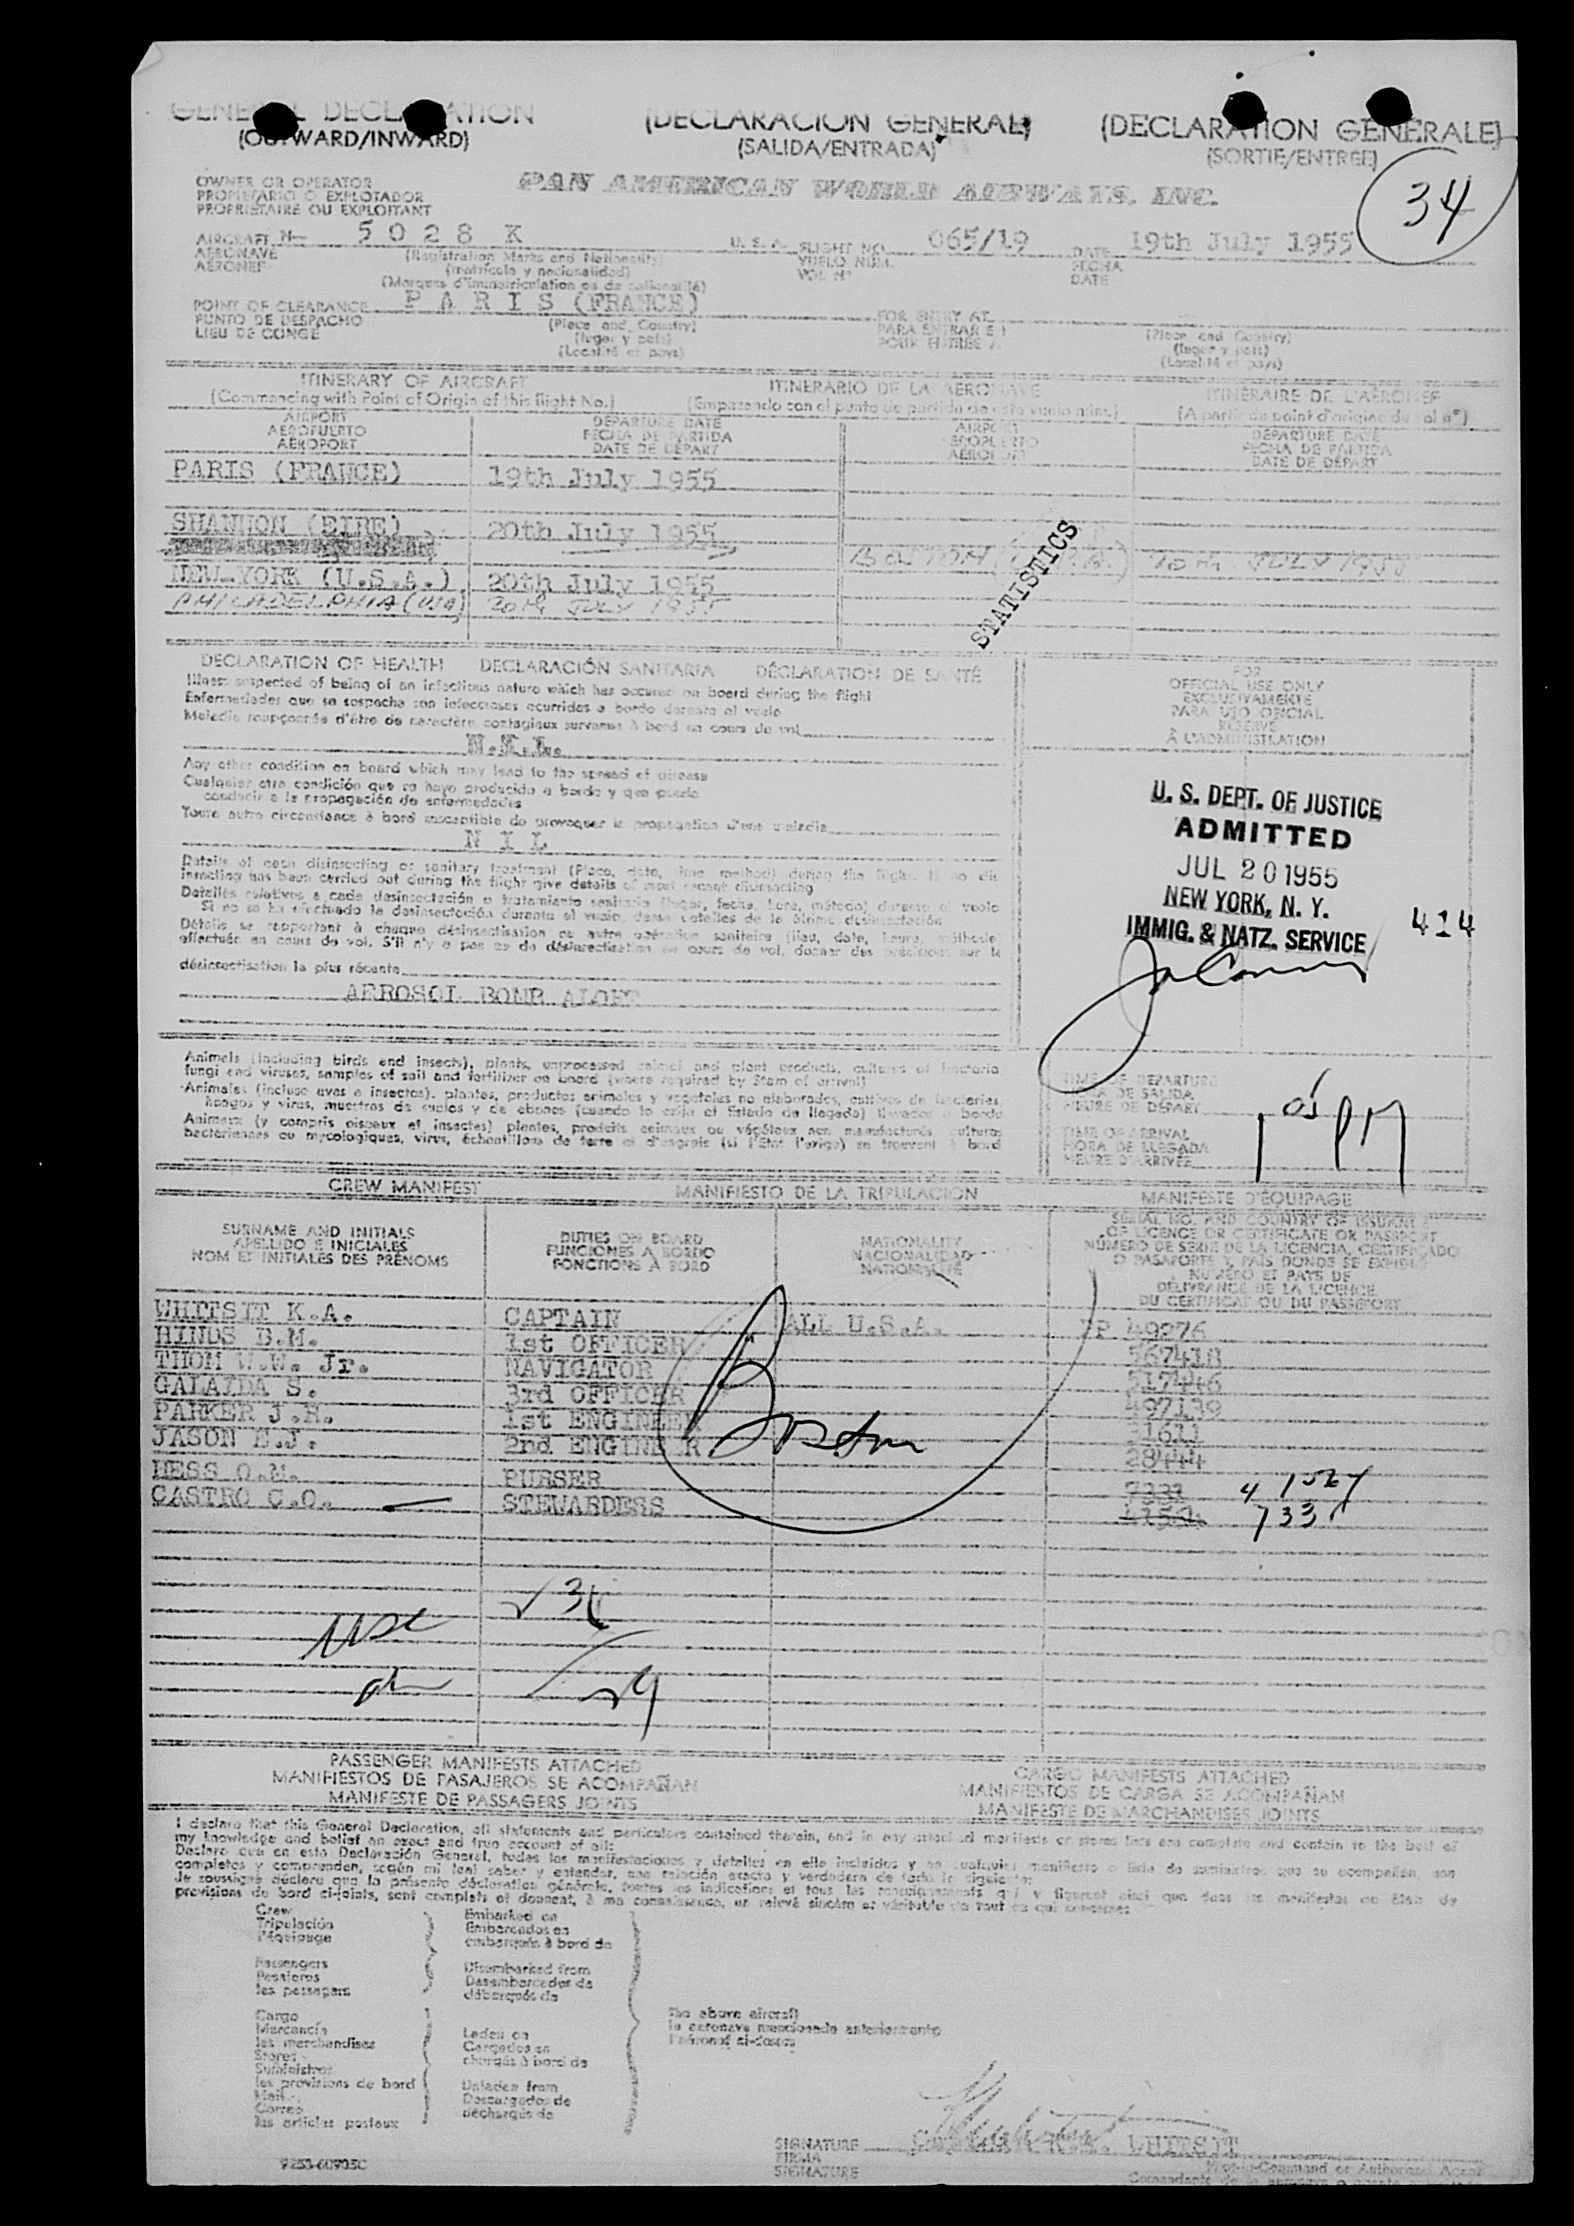 GENERAL DECLARATION (DECLARACION GENERAL) (DECLARATION GENERALE)
(OUTWARD/INWARD) (SALIDA/ENTRADA) (SORTIE/ENTREE)
34
OWNER OR OPERATOR PAN AMERICAN WORLD AIRWAYS, INC.
PROPIETARIO O EXPLOTADOR
PROPRIETAIRE OU EXPLOITANT
AIRCRAFT N- 5028 K U.S.A. FLIGHT NO. 065/19 DATE 19th July 1955
AERONAVE (Registration Marks and Nationality) VUELO NUM. FECHA
AERONEF (matrícula y nacionalidad) VOL Nº DATE
(Marques d'immatriculation ou de nationalité)
POINT OF CLEARANCE PARIS (FRANCE) FOR ENTRY AT
PUNTO DE DESPACHO (Place and Country) PARA ENTRAR EN (Place and Country)
LIEU DE CONGE (lugar y país) POUR ENTREE A (lugar y país)
(Localité et pays) (Localité et pays)
ITINERARY OF AIRCRAFT ITINERARIO DE LA AERONAVE ITINÉRAIRE DE L'AÉRONEF
(Commencing with Point of Origin of this flight No.) (Empezando con el punto de partida de este vuelo núm.) (A partir du point d'origine du vol nº)
AIRPORT DEPARTURE DATE AIRPORT DEPARTURE DATE
AEROPUERTO FECHA DE PARTIDA AEROPUERTO FECHA DE PARTIDA
AÉROPORT DATE DE DÉPART AÉROPORT DATE DE DÉPART
PARIS (FRANCE) 19th July 1955
SHANNON (EIRE) 20th July 1955
BOSTON (U.S.A.) 20th JULY 1955
NEW-YORK (U.S.A.) 20th July 1955
PHILADELPHIA (USA) 20th JULY 1955
STATISTICS
DECLARATION OF HEALTH DECLARACIÓN SANITARIA DÉCLARATION DE SANTÉ
Illness suspected of being of an infectious nature which has occured on board during the flight
Enfermedades que se sospecha son infecciosas ocurridas a bordo durante el vuelo
Maladie soupçonnée d'être de caractère contagieux survenue à bord en cours de vol
N.I.L.
Any other condition on board which may lead to the spread of disease
Cualquier otra condición que se haya producido a bordo y que pueda
conducir a la propagación de enfermedades
Toute autre circonstance à bord susceptible de provoquer la propagation d'une maladie
N I L
Details of each disinsecting or sanitary treatment (Place, date, time method) during the flight. If no dis
insecting has been carried out during the flight give details of most recent disinsecting
Detalles relativos a cada desinsectación o tratamiento sanitario (lugar, fecha, hora, método) durante el vuelo
Si no se ha efectuado la desinsectación durante el vuelo, dense detalles de la última desinsectación
Détails se rapportant à chaque désinsectisation ou autre opération sanitaire (lieu, date, heure, méthode)
effectuée en cours de vol. S'il n'y a pas eu de désinsectisation en cours de vol, donner des précisions sur la
désinsectisation la plus récente
AEROSOL BOMB ALOFT
FOR
OFFICIAL USE ONLY
EXCLUSIVAMENTE
PARA USO OFICIAL
RÉSERVÉ
À L'ADMINISTRATION
U. S. DEPT. OF JUSTICE
ADMITTED
JUL 20 1955
NEW YORK, N. Y.
IMMIG. & NATZ. SERVICE 414
Animals (including birds and insects), plants, unprocessed animal and plant products, cultures of bacteria
fungi and viruses, samples of soil and fertilizer on board (where required by State of arrival)
Animales (incluso aves e insectos), plantas, productos animales y vegetales no elaborados, cultivos de bacterias,
hongos y virus, muestras de suelos y de abonos (cuando lo exija el Estado de llegada) llevados a bordo
Animaux (y compris oiseaux et insectes) plantes, produits animaux ou végétaux non manufacturés, cultures
bactériennes ou mycologiques, virus, échantillons de terre et d'engrais (si l'État l'exige) se trouvant à bord
TIME OF DEPARTURE
HORA DE SALIDA
HEURE DE DÉPART
TIME OF ARRIVAL
HORA DE LLEGADA
HEURE D'ARRIVÉE
1 05 PM
CREW MANIFEST MANIFIESTO DE LA TRIPULACIÓN MANIFESTE D'ÉQUIPAGE
SURNAME AND INITIALS DUTIES ON BOARD NATIONALITY SERIAL NO. AND COUNTRY OF ISSUANCE
APELLIDO E INICIALES FUNCIONES A BORDO NACIONALIDAD OF LICENCE OR CERTIFICATE OR PASSPORT
NOM ET INITIALES DES PRÉNOMS FONCTIONS À BORD NATIONALITÉ NÚMERO DE SERIE DE LA LICENCIA, CERTIFICADO
O PASAPORTE Y PAÍS DONDE SE EXPIDIÓ
NUMÉRO ET PAYS DE
DÉLIVRANCE DE LA LICENCE
DU CERTIFICAT OU DU PASSEPORT
WHITSIT K.A. CAPTAIN ALL U.S.A. PP 49276
HINDS B.M. 1st OFFICER 567418
THOM W.W. Jr. NAVIGATOR 517446
GALAIDA S. 3rd OFFICER 497139
PARKER J.H. 1st ENGINEER 1611
JASON E.J. 2nd ENGINEER 28444
HESS O.M. PURSER
CASTRO C.O. STEWARDESS
Boston
PASSENGER MANIFESTS ATTACHED CARGO MANIFESTS ATTACHED
MANIFIESTOS DE PASAJEROS SE ACOMPAÑAN MANIFIESTOS DE CARGA SE ACOMPAÑAN
MANIFESTE DE PASSAGERS JOINTS MANIFESTE DE MARCHANDISES JOINTS
I declare that this General Declaration, all statements and particulars contained therein, and in any attached manifests or stores lists are complete and contain to the best of
my knowledge and belief an exact and true account of all:
Declaro que en esta Declaración General, todas las manifestaciones y detalles en ella incluidos y en cualquier manifiesto o lista de suministros que se acompañan, son
completos y comprenden, según mi leal saber y entender, una relación exacta y verdadera de todo lo siguiente:
Je soussigné déclare que la présente déclaration générale, toutes les indications et tous les renseignements qui y figurent ainsi que dans les manifestes ou États de
provisions de bord ci-joints, sont complets et donnent, à ma connaissance, un relevé sincère et véritable de tout ce qui concerne:
Crew Embarked on
Tripulación Embarcados en
l'équipage embarqués à bord de
Passengers Disembarked from
Pasajeros Desembarcados de
les passagers débarqués de
Cargo The above aircraft
Mercancía Laden on la aeronave mencionada anteriormente
les marchandises Cargados en l'aéronef ci-dessus
Stores chargés à bord de
Suministros
les provisions de bord Unladen from
Mail Descargados de
Correo déchargés de
les articles postaux
SIGNATURE Captain K.A. WHITSIT
FIRMA
SIGNATURE
Pilot-in-Command or Authorized Agent
9253-60905C